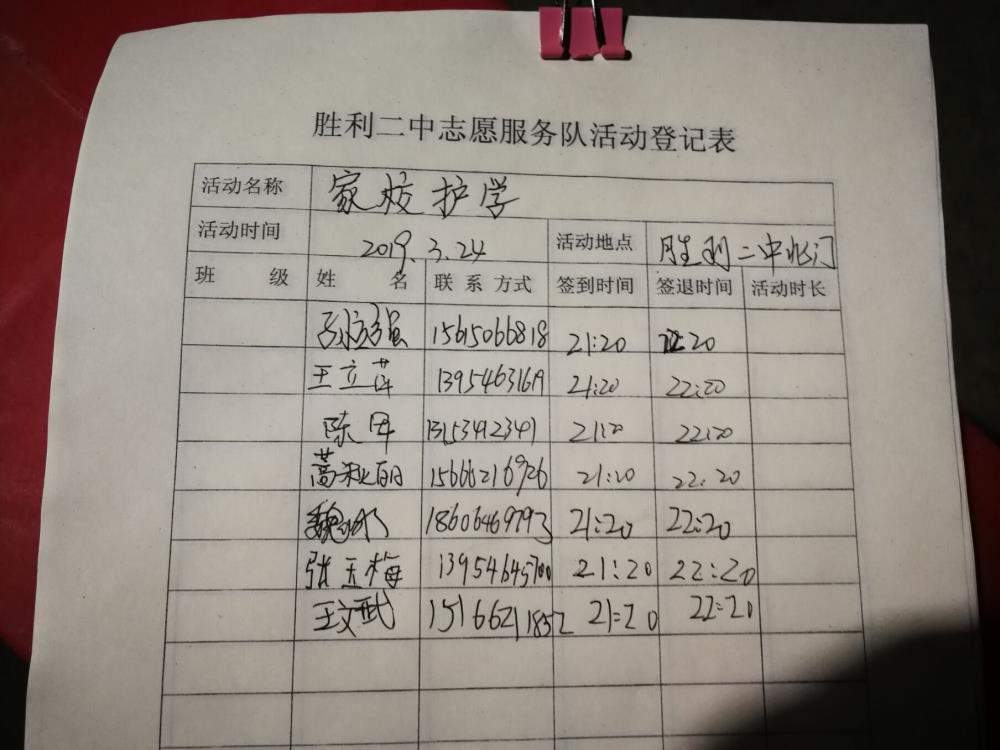 胜利二中志愿服务队活动登记表
活动名称 家校护学
活动时间 2019.3.24 活动地点 胜利二中北门
班 级 姓 名 联系方式 签到时间 签退时间 活动时长
15615066818 21:20 22:20
王立萍 13954631619 21:20 22:20
陈军 13153412341 21:20 22:20
15666216926 21:20 22:20
18606469793 21:20 22:20
张玉梅 13954645700 21:20 22:20
王文武 15166211852 21:20 22:20